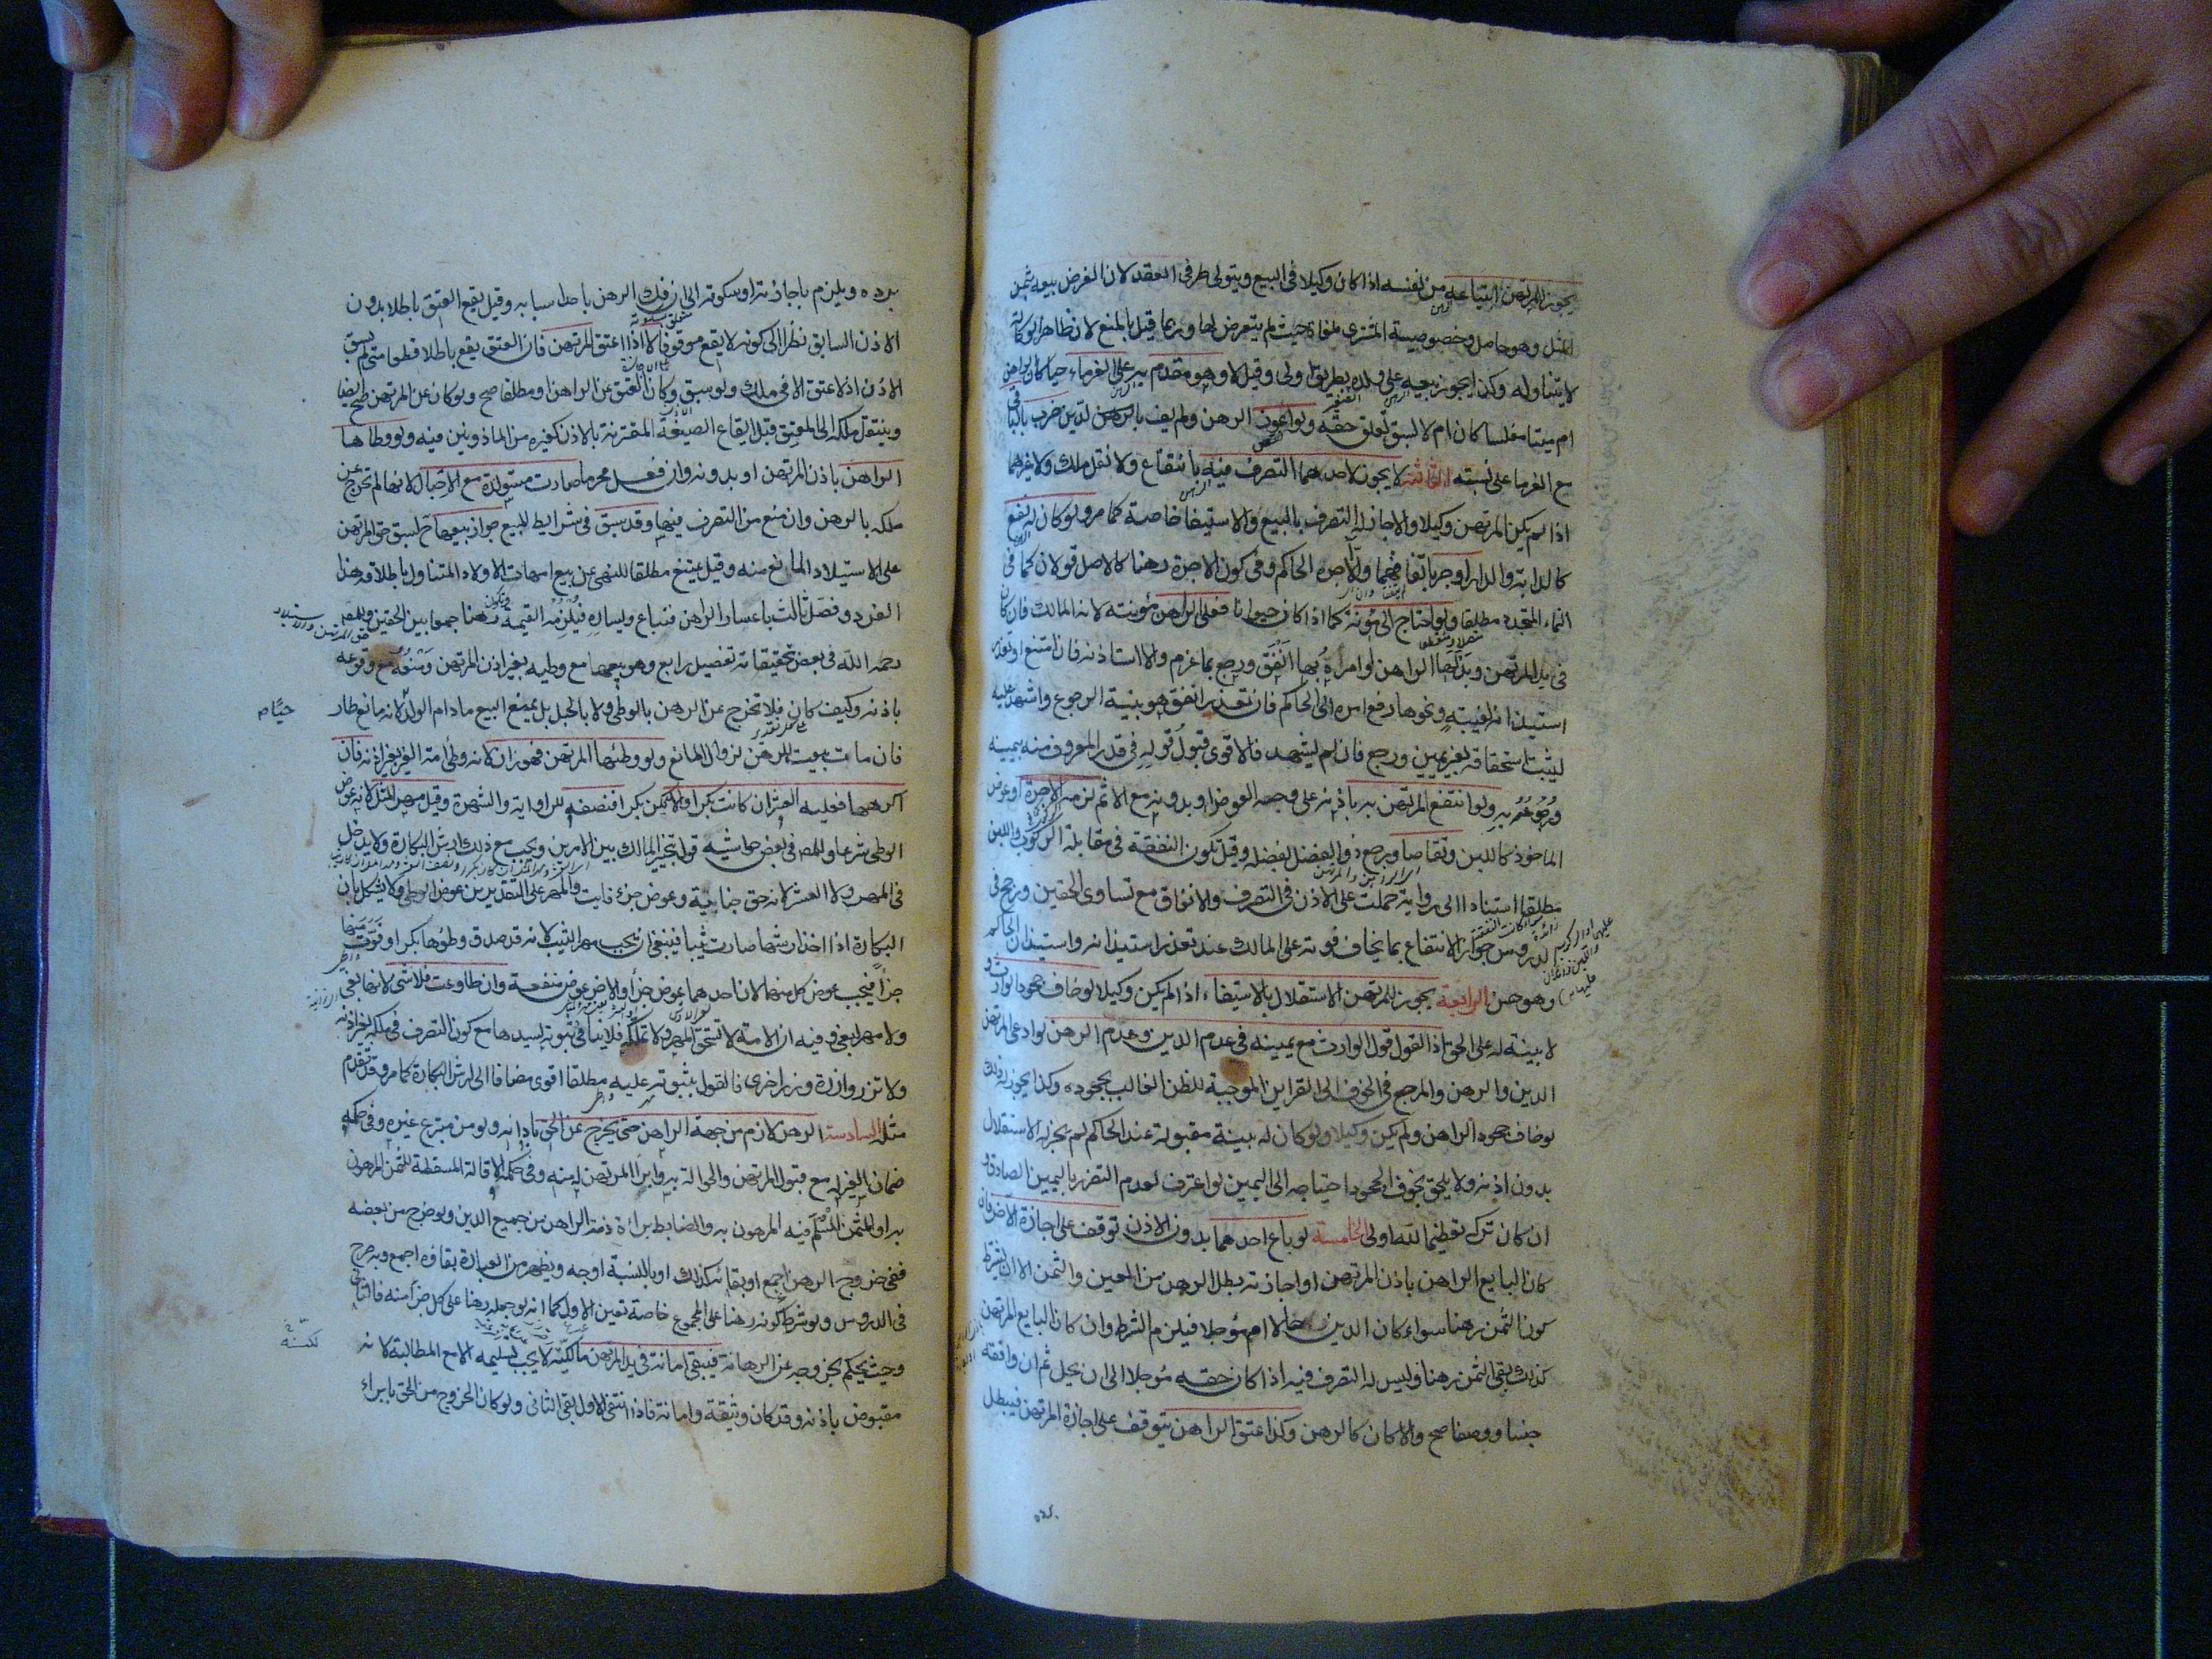 يجوز للمرتهن ابتياعه من نفسه اذا كان وكيلا في البيع ويتولى طرفي العقد لان الغرض بيعه بثمن
المثل وهو حاصل وخصوصية المشتري ملغاة حيث لم يتعرض لها وربما قيل بالمنع لان ظاهر الوكالة
لا يتناوله وكذا يجوز بيعه على ولده بطريق اولى وقيل لا وهو مقدم به على الغرماء حيا كان الراهن
ام ميتا مفلسا كان ام لا لسبق تعلق حقه ولو اعوز الرهن ولم يف بالدين ضرب بالباقي
مع الغرما على نسبته الثالثة لا يجوز لاحدهما التصرف فيه بانتفاع ولا نقل ملك ولا غيرهما
اذا لم يكن المرتهن وكيلا والا جاز له التصرف بالبيع والاستيفا خاصة كما مر ولو كان له نفع
كالدابة والدار اوجر باتفاقهما والا آجره الحاكم وفي كون الاجرة رهنا كالاصل قولان كما في
النماء المتجدد مطلقا ولو احتاج الى مؤنة كما اذا كان حيوانا فعلى الراهن مؤنته لانه المالك فان كان
في يد المرتهن وبذلها الراهن او امره بها انفق ورجع بما غرم والا استاذنه فان امتنع او تعذر
استيذانه لغيبته ونحوها رفع امره الى الحاكم فان تعذر انفق هو بنية الرجوع واشهد عليه
ليثبت استحقاقه بغير يمين ورجع فان لم يشهد فالاقوى قبول قوله في قدر المعروف منه بيمينه
ورجوعه به ولو انتفع المرتهن به باذنه على وجه العوض او بدونه مع الاثم لزمه الاجرة او عوض
الماخوذ كاللبن وتقاصا ورجع ذو الفضل بفضله وقيل تكون النفقة في مقابلة الركوب واللبن
مطلقا استنادا الى رواية حملت على الاذن في التصرف والانفاق مع تساوي الحقين ورجح في
الدروس جواز الانتفاع بما يخاف فوته على المالك عند تعذر استيذانه واستيذان الحاكم
وهو حسن الرابعة يجوز للمرتهن الاستقلال بالاستيفاء اذا لم يكن وكيلا لو خاف جحود الوارث و
لا بينة له على الحق اذ القول قول الوارث مع يمينه في عدم الدين وعدم الرهن لو ادعى المرتهن
الدين والرهن والمرجع في الخوف الى القراين الموجبة للظن الغالب بجحوده وكذا يجوز له ذلك
لو خاف جحود الراهن ولم يكن وكيلا ولو كان له بينة مقبولة عند الحاكم لم يجز له الاستقلال
بدون اذنه ولا يلحق بخوف الجحود احتياجه الى اليمين لو اعترف لعدم التضرر باليمين الصادقة و
ان كان ترك تعظيما لله اولى الخامسة لو باع احدهما بدون الاذن توقف على اجازة الآخر فان
كان البايع الراهن باذن المرتهن او اجازته بطل الرهن من العين والثمن الا ان يشترط
كون الثمن رهنا سواء كان الدين حالا ام مؤجلا فيلزم الشرط وان كان البايع المرتهن
كذلك بقى الثمن رهنا وليس له التصرف فيه اذا كان حقه مؤجلا الى ان يحل ثم ان وافقه
جنسا ووصفا صح والا كان كالرهن وكذا عتق الراهن يتوقف على اجازة المرتهن فيبطل
برده ويلزم باجازته او سكوته الى ان فك الرهن باحد اسبابه وقيل يقع العتق باطلا بدون
الاذن السابق نظرا الى كونه لا يقع موقوفا لا اذا اعتق المرتهن فان العتق يقع باطلا قطعا متى لم يسبق
الاذن اذ لا عتق الا في ملك ولو سبق وكان العتق عن الراهن او مطلقا صح ولو كان عن المرتهن صح ايضا
وينتقل ملكه الى المعتق قبل ايقاع الصيغة المقترنة بالاذن كغيره من الماذونين فيه ولو وطاها
الراهن باذن المرتهن او بدونه وان فعل محرما صارت مستولدة مع الاحبال لانها لم تخرج عن
ملكه بالرهن وان منع من التصرف فيها وقد سبق في شرايط المبيع جواز بيعها ح لسبق حق المرتهن
على الاستيلاد المانع منه وقيل يمتنع مطلقا للنهي عن بيع امهات الاولاد المتناول باطلاقه هذا
الفرد وفصل ثالث باعسار الراهن فتباع ويساره فيلزمه القيمة وتكون رهنا جمعا بين الحقين وللمص
رحمه الله في بعض تحقيقاته تفصيل رابع وهو بيعها مع وطيه بغير اذن المرتهن ومنعه مع وقوعه
باذنه وكيف كان فلا تخرج عن الرهن بالوطى ولا بالحبل بل يمنع البيع مادام الولد لانه مانع طار
فان مات بيعت للرهن لزوال المانع ولو وطئها المرتهن فهو زان لانه وطى امة الغير بغير اذنه فان
اكرهها فعليه العشر ان كانت بكرا والا تكن بكرا فنصفه للرواية والشهرة وقيل مهر المثل لانه عوض
الوطى شرعا وللمص في بعض حواشيه قول بتخيير المالك بين الامرين ويجب مع ذلك ارش البكارة ولا يدخل
في المهر ولا العشر لانه حق جناية وعوض جزء فايت والمهر على التقديرين عوض الوطى ولا يشكل بان
البكارة اذا اخذ ارشها صارت ثيبا فينبغي ان يجب مهر الثيب لانه قد صدق وطؤها بكرا وفوت منها
جزأ فيجب عوض كل منهما لان احدهما عوض جزء والاخر عوض منفعة وان طاوعت فلا شى لانها بغى
ولا مهر لبغى وفيه ان الامة لا تستحق المهر ولا تملكه فلا ينافي ثبوته لسيدها مع كون التصرف في ملكه بغير اذنه
ولا تزر وازرة وزر اخرى فالقول بثبوته عليه مطلقا اقوى مضافا الى ارش البكارة كما مر وقد تقدم
مثله السادسة الرهن لازم من جهة الراهن حتى يخرج عن الحق بادائه ولو من متبرع غيره وفي حكمه
ضمان الغير له مع قبول المرتهن والحوالة به وابراء المرتهن له منه وفي حكمه الاقالة المسقطة للثمن المرهون
به او المثمن المسلم فيه المرهون به والضابط براءة ذمة الراهن من جميع الدين ولو خرج من بعضه
ففي خروج الرهن اجمع او بقائه كذلك او بالنسبة اوجه ويظهر من العبارة بقاؤه اجمع وبه صرح
في الدروس ولو شرط كونه رهنا على المجموع خاصة تعين الاول كما انه لو جعله رهنا على كل جزء منه فالثاني
وحيث يحكم بخروجه عن الرهانة فيبقى امانة في يد المرتهن مالكية لا يجب تسليمه الا مع المطالبة لانه
مقبوض باذنه وقد كان وثيقة وامانة فاذا انتفى الاول بقي الثاني ولو كان الخروج من الحق بابراء